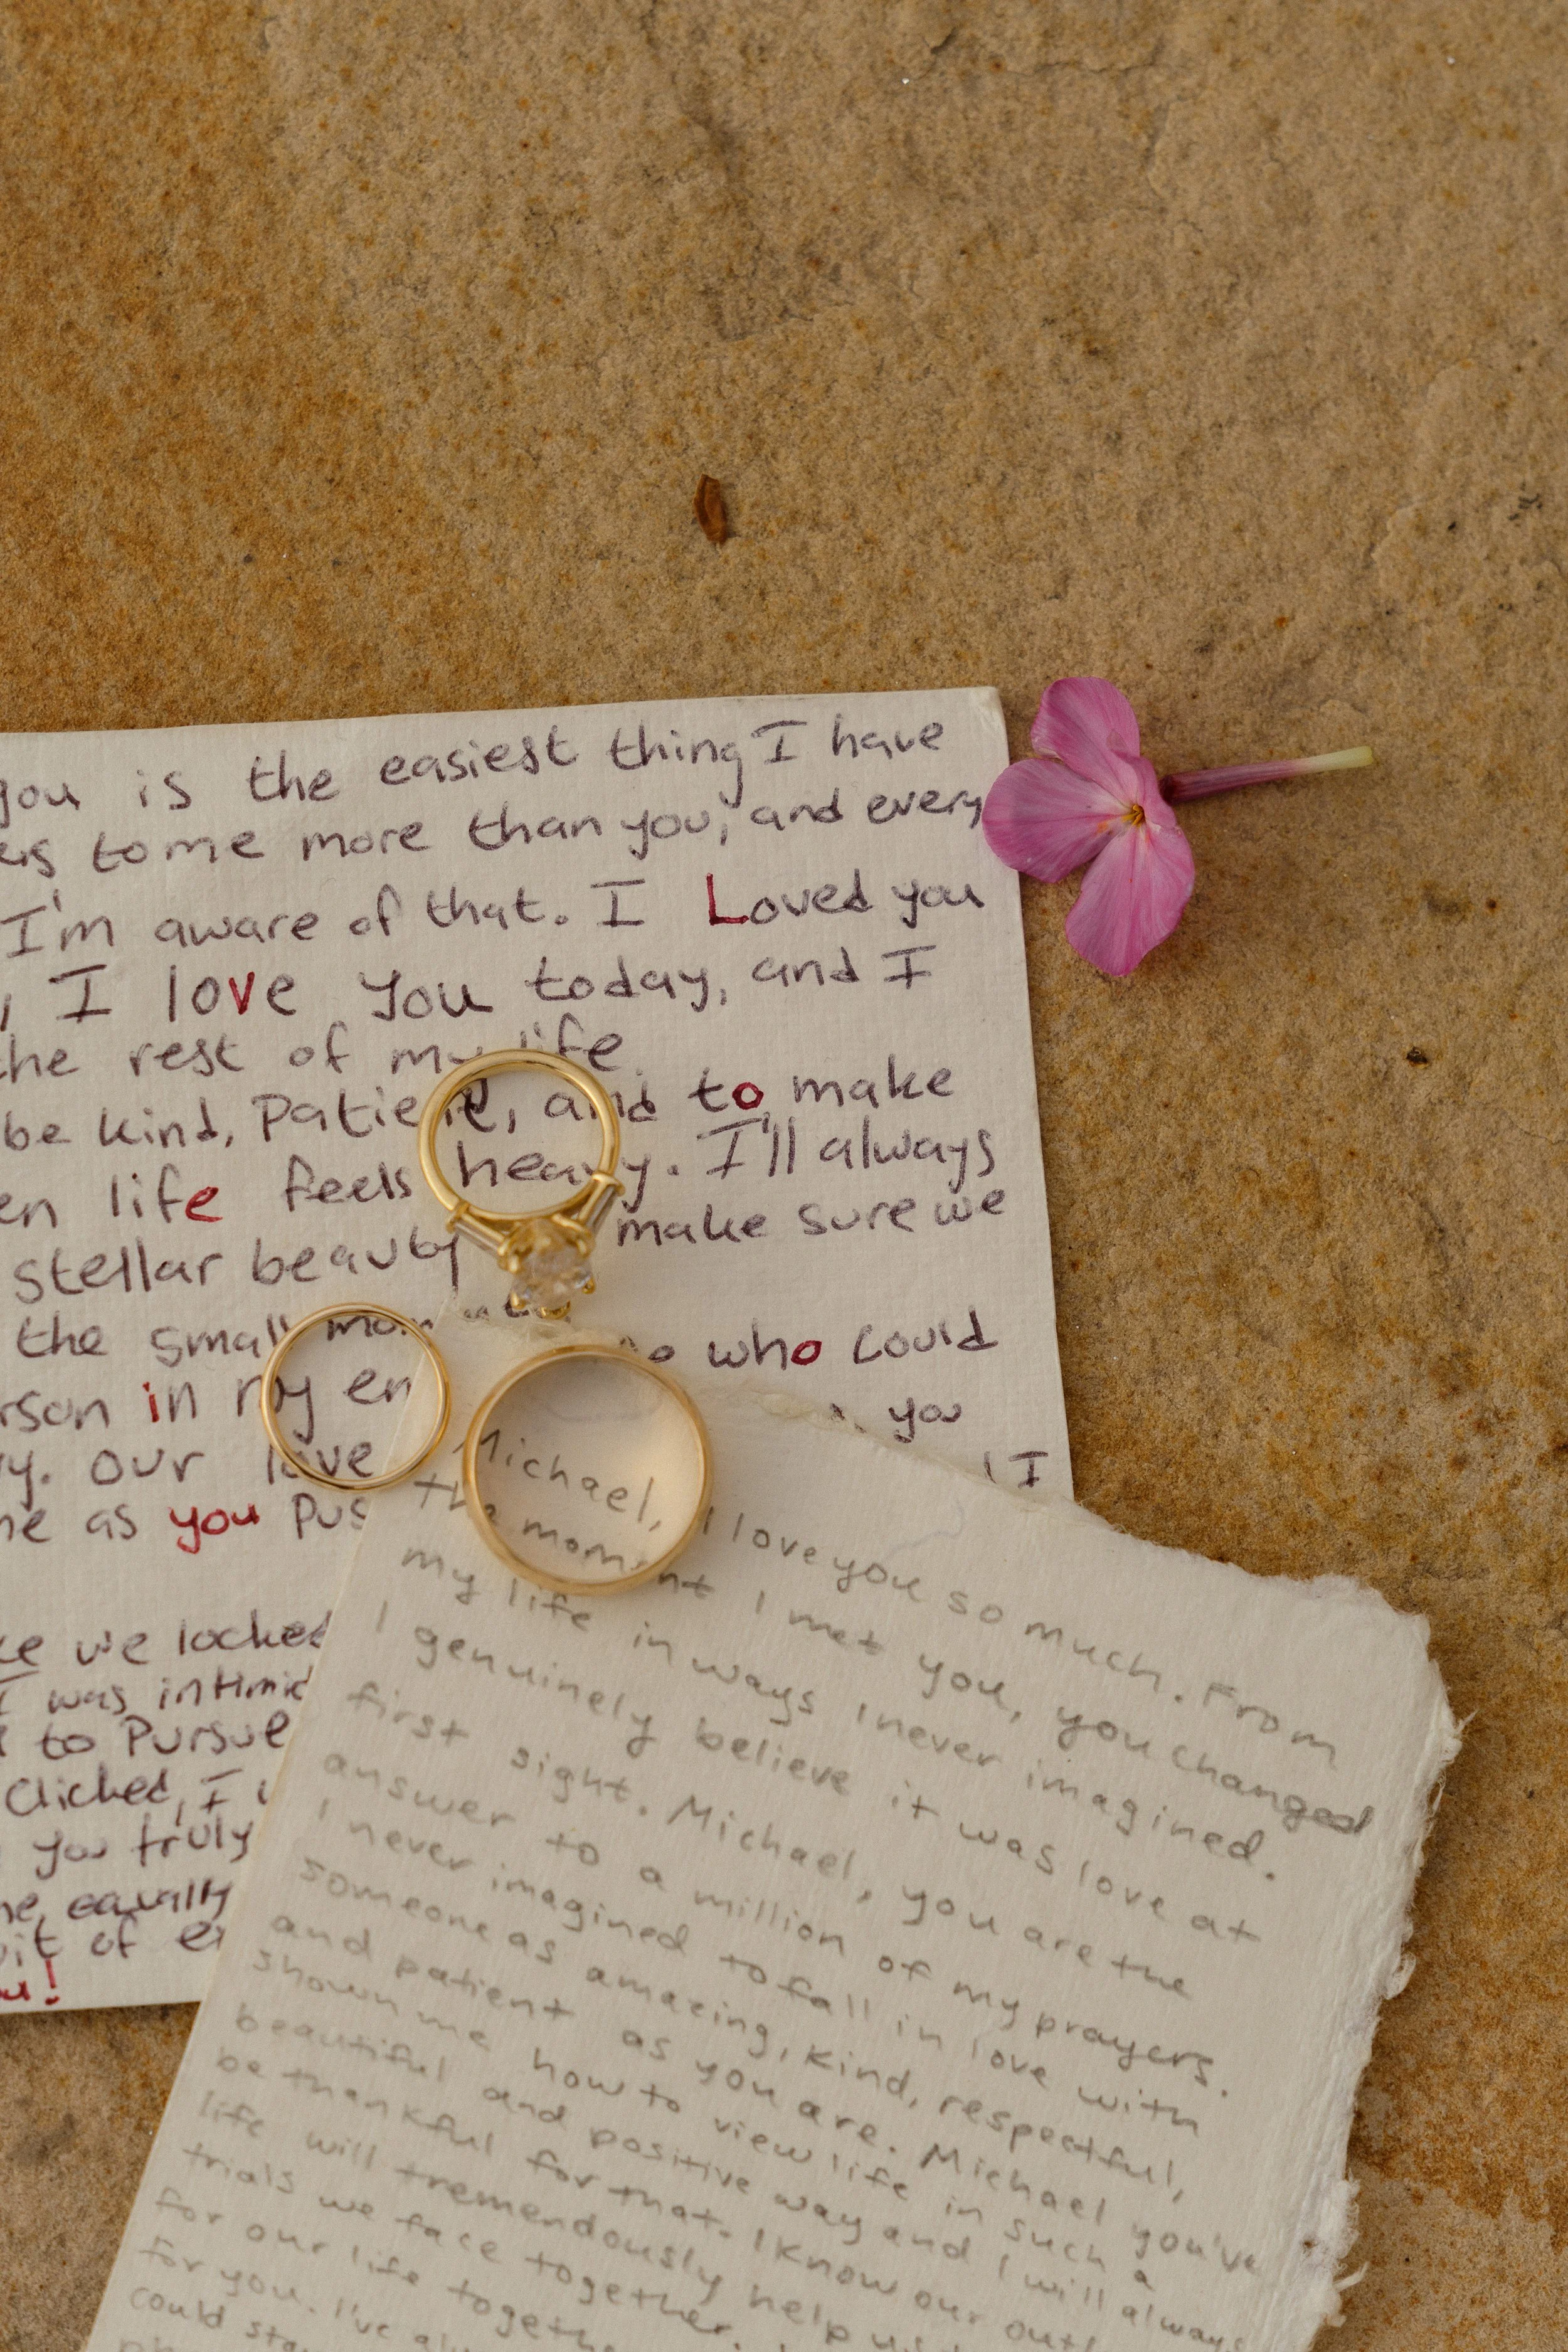 you is the easiest thing I have
to me more than you, and every
I'm aware of that. I Loved you
, I love you today, and I
the rest of my life.
be kind, Patient, and to make
life feels heavy. I'll always
stellar beauty make sure we
the small who could
in my en
you
y. our love I
as you Pus
we locked
I was intimid
to Pursue
Clicked, I
you truly
equally
of
!
Michael, I love you so much. From
the moment I met you, you changed
my life in ways I never imagined.
I genuinely believe it was love at
first sight. Michael, you are the
answer to a million of my prayers.
I never imagined to fall in love with
someone as amazing, kind, respectful,
and patient as you are. Michael you've
shown me how to view life in such a
beautiful and positive way and I will always
be thankful for that. I know our outl
life will tremendously help us
trials we face together.
for our life togethe
for you. I've al
could sta